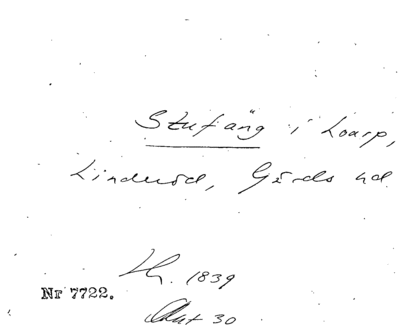 Stufäng i Loarp,
Linderöd, Gärds hd
Lh. 1839
Nr 7722.
Akt 30